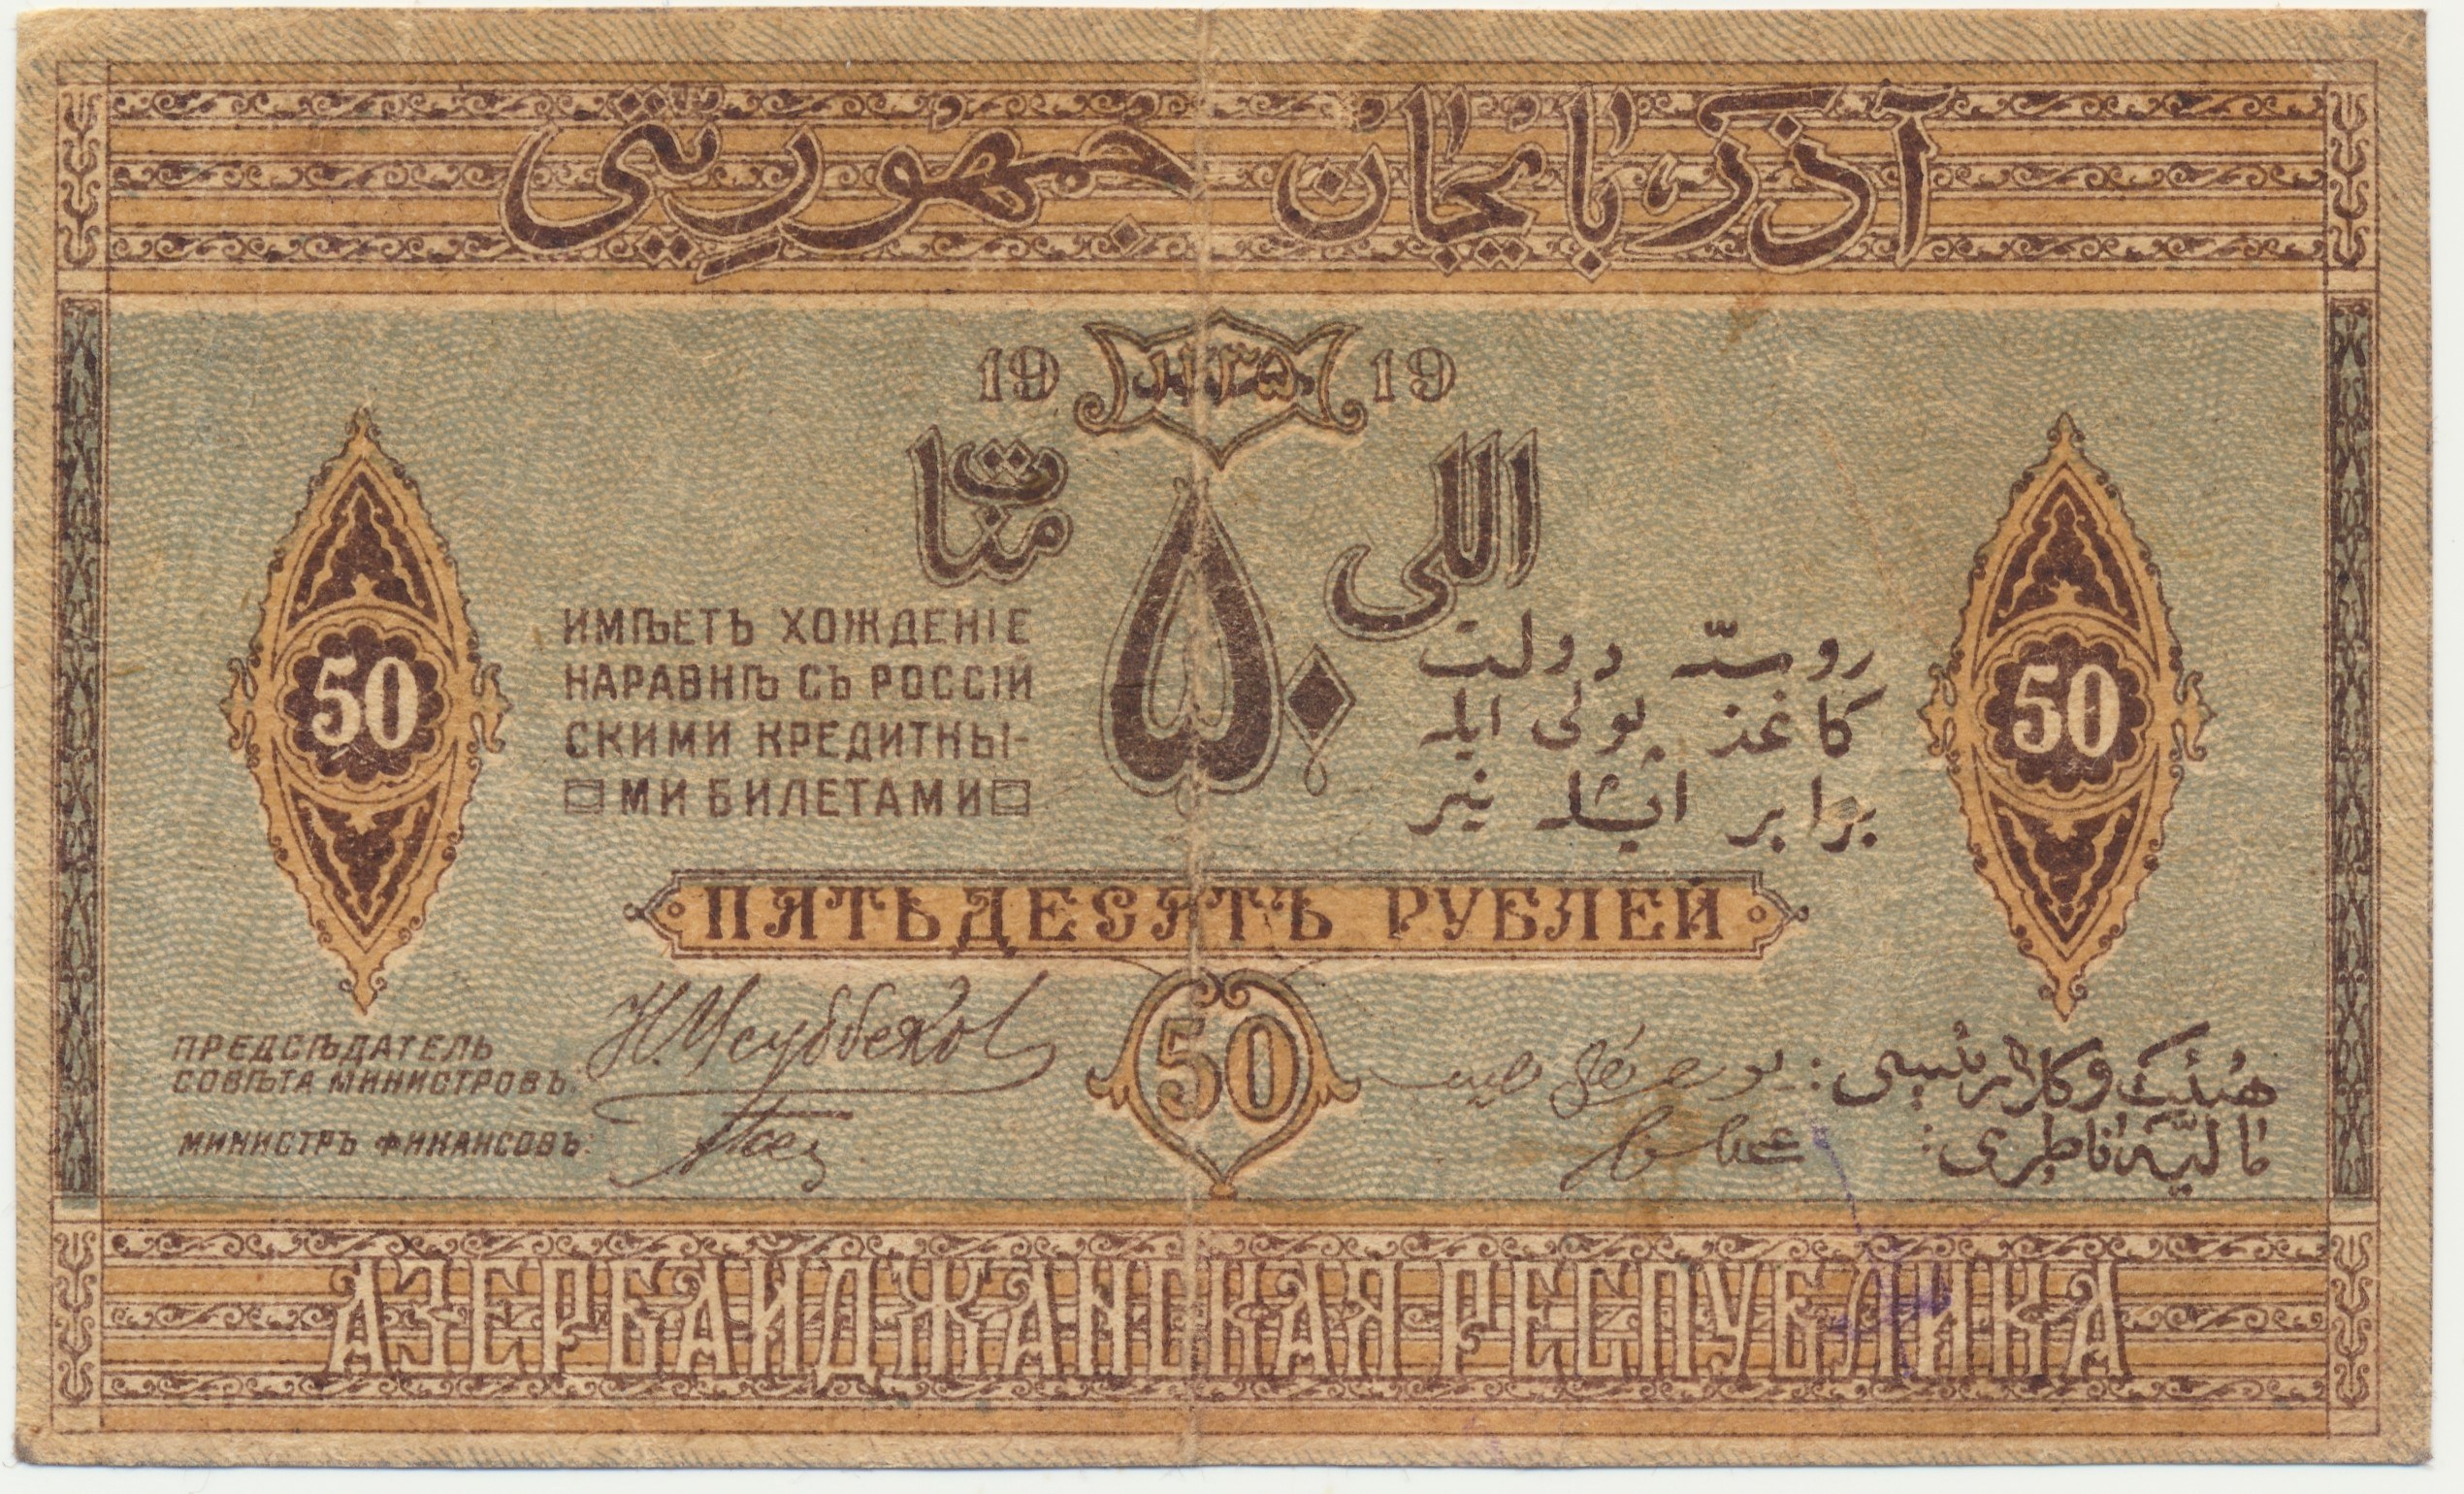 آذربایجان جمهوریتی
19 19
اللی ۵۰ منات
ИМѢЕТЪ ХОЖДЕНІЕ
НАРАВНѢ СЪ РОССІЙ
СКИМИ КРЕДИТНЫ-
МИ БИЛЕТАМИ
روسیّه دولت
کاغذ پولی ایله
برابر ایشله نیر
50
50
ПЯТЬДЕСЯТЪ РУБЛЕЙ
50
ПРЕДСѢДАТЕЛЬ
СОВѢТА МИНИСТРОВЪ: Н. Усуббеков
МИНИСТРЪ ФИНАНСОВЪ:
هیئت وکلا رئیسی:
مالیّه ناظری:
АЗЕРБАЙДЖАНСКАЯ РЕСПУБЛИКА